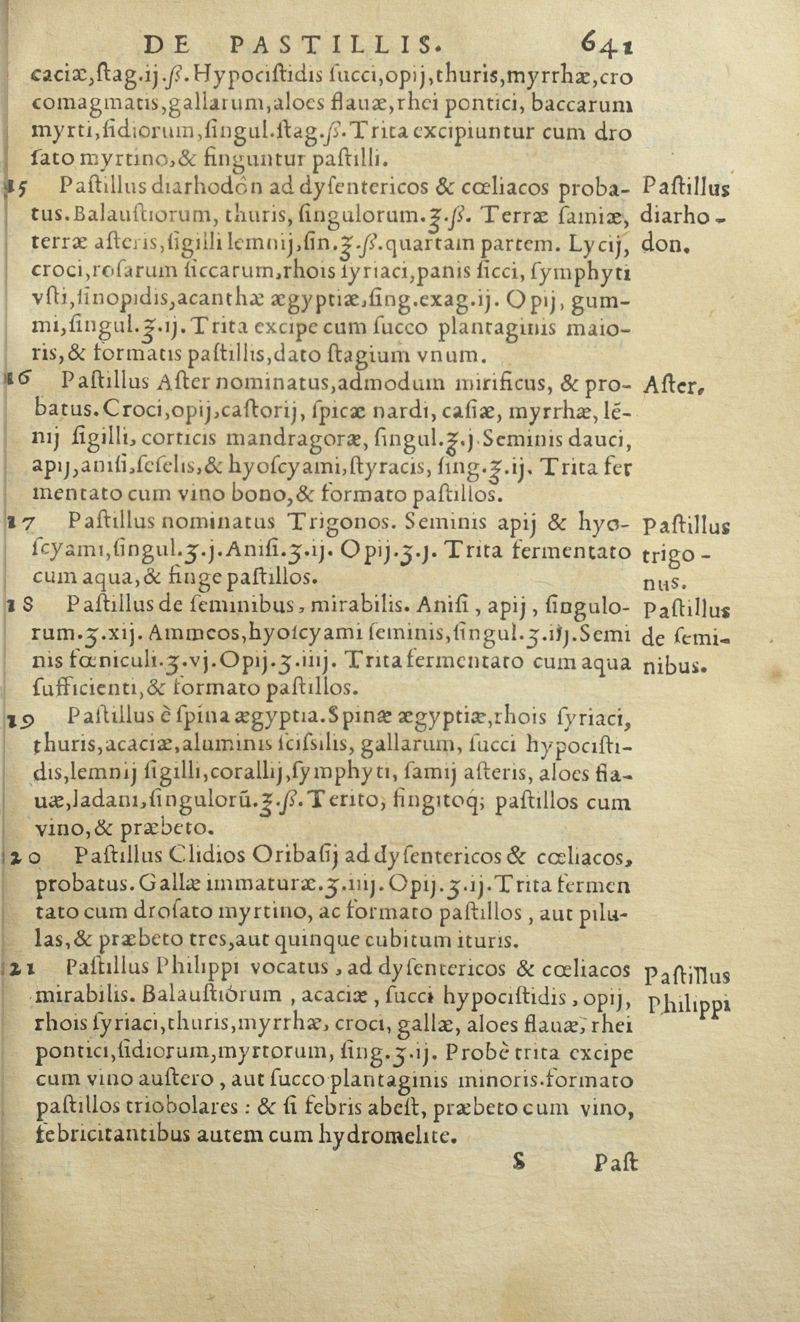 DE PASTILLIS. 641
caciæ,ſtag.ij.ß.Hypociſtidis ſucci,opij,thuris,myrrhæ,cro
comagmatis,gallarum,aloes flauæ,rhei pontici, baccarum
myrti,ſidiorum,ſingul.ſtag.ß.Trita excipiuntur cum dro
ſato myrtino,& finguntur paſtilli.
15 Paſtillus diarhodòn ad dyſentericos & cœliacos proba- Paſtillus
tus.Balauſtiorum, thuris, ſingulorum.℥.ß. Terræ ſamiæ, diarho-
terræ aſteris,ſigilli lemnij,ſin.℥.ß.quartam partem. Lycij, don.
croci,roſarum ſiccarum,rhois ſyriaci,panis ſicci, ſymphyti
vſti,ſinopidis,acanthæ ægyptiæ,ſing.exag.ij. Opij, gum-
mi,ſingul.℥.ij.Trita excipe cum ſucco plantaginis maio-
ris,& formatis paſtillis,dato ſtagium vnum.
16 Paſtillus Aſter nominatus,admodum mirificus, & pro- Aſter.
batus.Croci,opij,caſtorij, ſpicæ nardi, caſiæ, myrrhæ, lē-
nij ſigilli, corticis mandragoræ, ſingul.℥.j.Seminis dauci,
apij,aniſi,ſeſelis,& hyoſcyami,ſtyracis, ſing.℥.ij. Trita fer
mentato cum vino bono,& formato paſtillos.
17 Paſtillus nominatus Trigonos. Seminis apij & hyo- Paſtillus
ſcyami,ſingul.ʒ.j.Aniſi.ʒ.ij. Opij.ʒ.j. Trita fermentato trigo-
cum aqua,& finge paſtillos. nus.
18 Paſtillus de ſeminibus, mirabilis. Aniſi, apij, ſingulo- Paſtillus
rum.ʒ.xij. Ammeos,hyoſcyami ſeminis,ſingul.ʒ.iij.Semi de ſemi-
nis fœniculi.ʒ.vj.Opij.ʒ.iiij. Trita fermentato cum aqua nibus.
ſufficienti,& formato paſtillos.
19 Paſtillus è ſpina ægyptia.Spinæ ægyptiæ,rhois ſyriaci,
thuris,acaciæ,aluminis ſciſsilis, gallarum, ſucci hypociſti-
dis,lemnij ſigilli,corallij,ſymphyti, ſamij aſteris, aloes fla-
uæ,ladani,ſingulorū.℥.ß.Terito, fingitoq́; paſtillos cum
vino,& præbeto.
20 Paſtillus Clidios Oribaſij ad dyſentericos & cœliacos,
probatus.Gallæ immaturæ.ʒ.iiij.Opij.ʒ.ij.Trita fermen
tato cum droſato myrtino, ac formato paſtillos, aut pilu-
las,& præbeto tres,aut quinque cubitum ituris.
21 Paſtillus Philippi vocatus, ad dyſentericos & cœliacos Paſtillus
mirabilis. Balauſtiórum, acaciæ, ſucci hypociſtidis, opij, Philippi
rhois ſyriaci,thuris,myrrhæ, croci, gallæ, aloes flauæ, rhei
pontici,ſidiorum,myrtorum, ſing.ʒ.ij. Probè trita excipe
cum vino auſtero, aut ſucco plantaginis minoris.formato
paſtillos triobolares : & ſi febris abeſt, præbeto cum vino,
febricitantibus autem cum hydromelite.
S Paſt